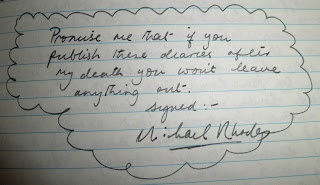 Promise me that if you
publish these diaries after
my death you won't leave
anything out.
signed:-
Michael Rhodes